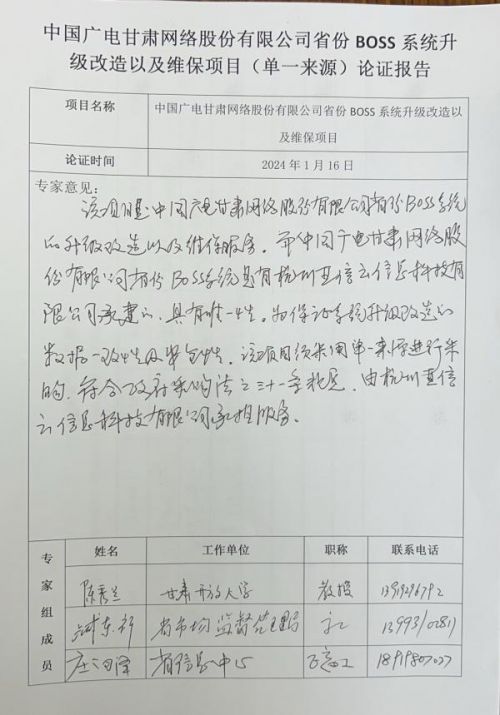 中国广电甘肃网络股份有限公司省份 BOSS 系统升
级改造以及维保项目（单一来源）论证报告
项目名称 中国广电甘肃网络股份有限公司省份 BOSS 系统升级改造以
及维保项目
论证时间 2024 年 1 月 16 日
专家意见：
该项目是中国广电甘肃网络股份有限公司省份BOSS系统
的升级改造以及维保服务。而中国广电甘肃网络股
份有限公司省份BOSS系统是有杭州直信云信息科技有
限公司承建的，具有唯一性。为保证系统升级改造的
数据一致性及安全性，该项目须采用单一来源进行采
购，符合政府采购法之三十一条规定，由杭州直信
云信息科技有限公司承担服务。
专家组成员 姓名 工作单位 职称 联系电话
陈 甘肃开放大学 教授
东 省市场监督管理局
庄 省信息中心 高工